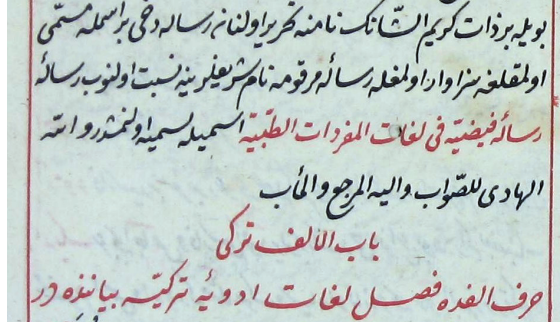 بویله بر ذات کریم الشانک نامنه تحریر اولنان رساله دخی بر اسمله مسمی
اولمقلغه سزاوار اولمغله رساله مرقومه نام شریفلرینه نسبت اولنوب رسالۀ
رسالۀ فیضیّه فی لغات المفردات الطبّیّة اسمیله تسمیه اولنمشدر و الله
الهادی للصّواب والیه المرجع والمأب
باب الألف ترکی
حرف الفده فصل لغات ادویۀ ترکیّه بیاننده در